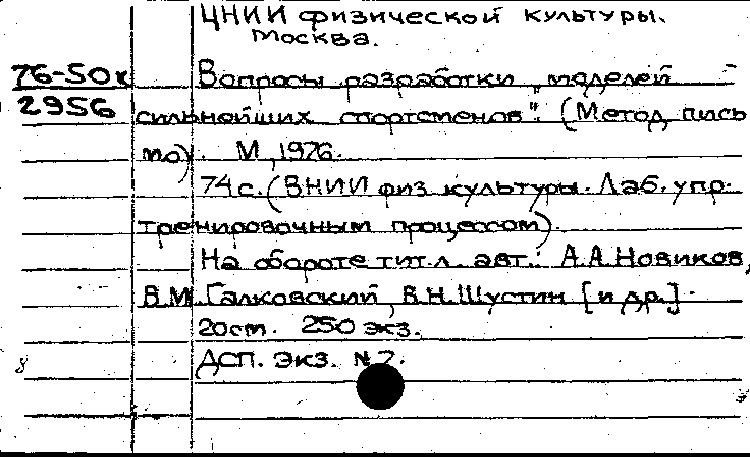 ЦНИИ физической культуры.
Москва.
76-50к
2956
Вопросы разработки „моделей
сильнейших спортсменов". (Метод. пись
мо). М, 1976.
74с. (ВНИИ физ культуры. Лаб. упр.
тренировочным процессом).
На обороте тит.л. авт.: А.А. Новиков,
В.М. Галковский, В.Н. Шустин [и др.].
20см. 250 экз.
ДСП. Экз. №7.
8